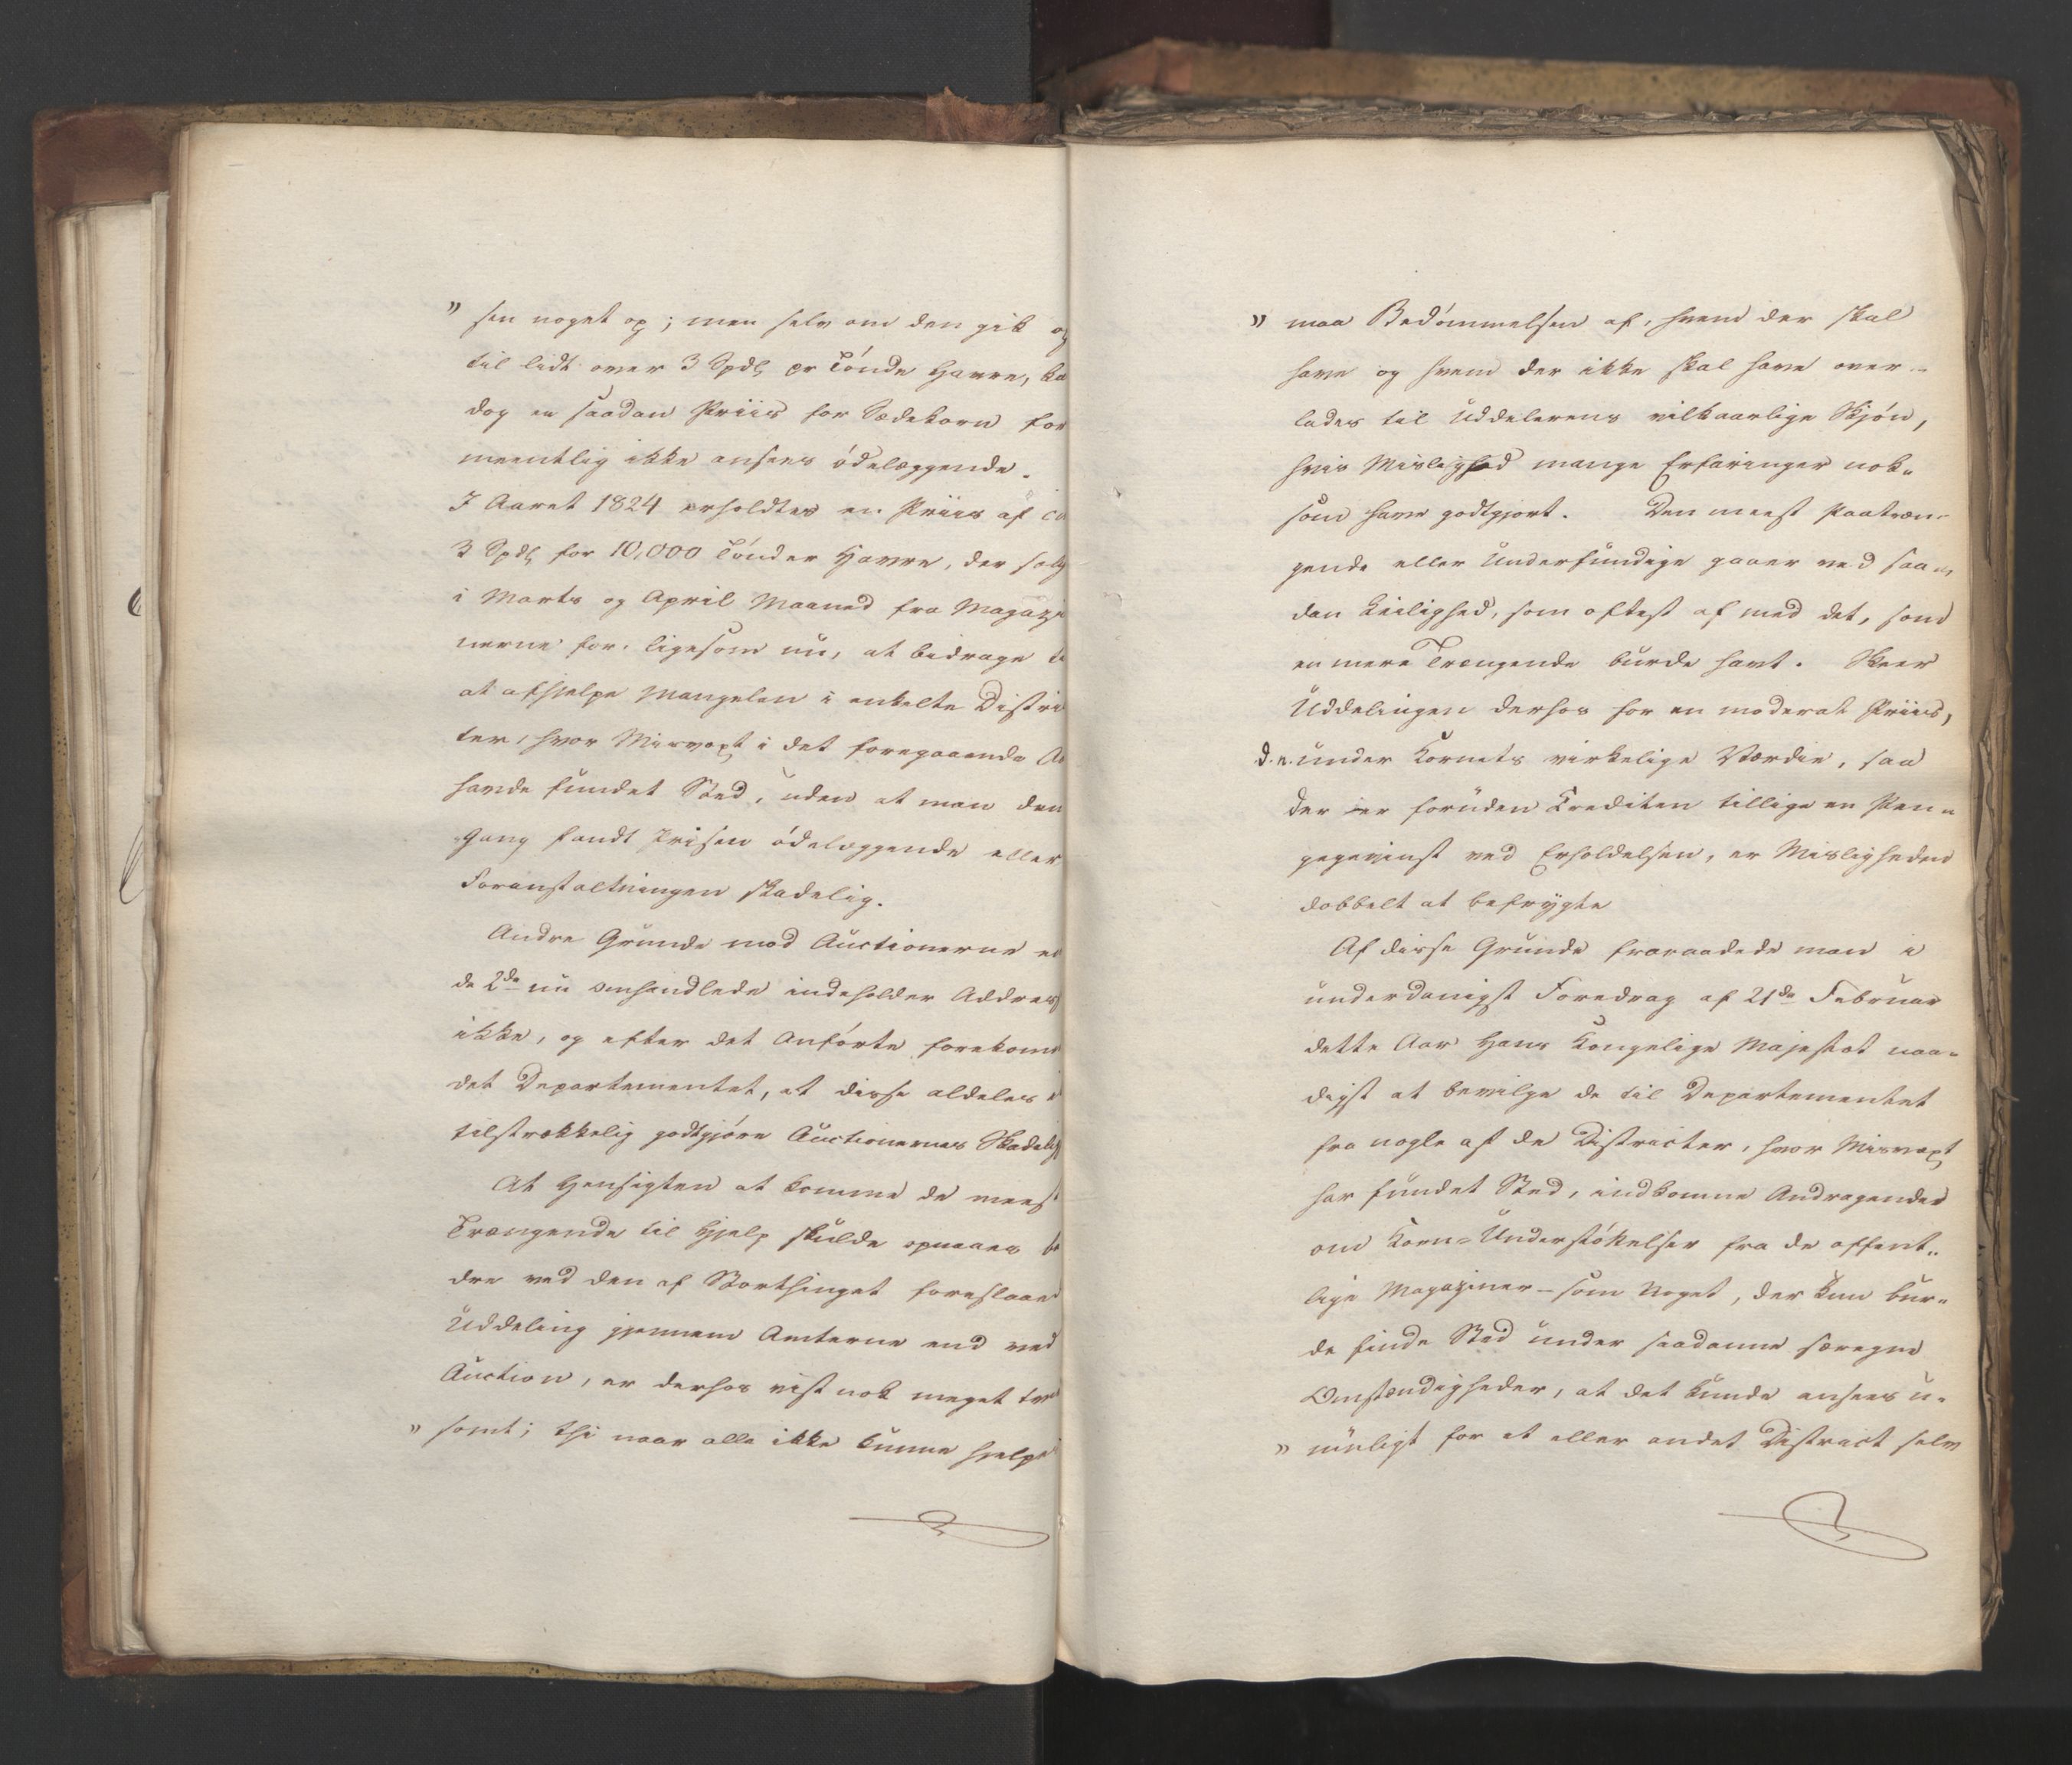 " sen noget op; men selv om den gik op
til lidt over 3 Spdlr pr Tønde Havre, ka
dog en saadan Priis for Sædekorn for
meentlig ikke ansees ødelæggende.
I Aaret 1824 erholdtes en Priis af ca
3 Spdlr for 10,000 Tønder Havre, der solg
i Marts og April Maaned fra Magazi
nerne for, ligesom nu, at bidrage ti
at afhjelpe Mangelen i enkelte Distri
ter, hvor Misvæxt i det foregaaende Aa
havde fundet Sted, uden at man den
Gang fandt Prisen ødelæggende eller
Foranstaltningen skadelig.
Andre Grunde mod Auctionerne e
de 2de nu omhandlede indeholder Addres
ikke, og efter det Anførte forekom
det Departementet, at disse aldeles i
tilstrækkelig godtgjøre Auctionernes Skadelig
At Hensigten at komme de meest
Trængende til Hjelp skulde opnaaes be
dre ved den af Storthinget foreslaaed
Uddeling gjennem Amterne end ved
Auction, er derhos vist nok meget tvi
" somt; thi naar alle ikke kunne hjelpe
" maa Bedømmelsen af, hvem der skal
have og hvem der ikke skal have over-
lades til Uddelerens vilkaarlige Skjøn,
hvis Mislighed mange Erfaringer nok-
som have godtgjort. Den meest Paatræn-
gende eller Underfundige gaaer ved saa-
dan Leilighed, som oftest af med det, som
en mere Trængende burde havt. Skeer
Uddelingen derhos for en moderat Priis,
d.e. under Kornets virkelige Værdie, saa
der er foruden Crediten tillige en Pen-
gegevinst ved Erholdelsen, er Misligheden
dobbelt at befrygte
Af disse Grunde fraraadede man i
underdanigst Foredrag af 21de Februar
dette Aar Hans Kongelige Majestæt naa-
digst at bevilge de til Departementet
fra nogle af de Districter, hvor Misvæxt
har fundet Sted, indkomne Andragender
om Korn-Understøttelser fra de offent-
lige Magaziner - som Noget, der kun bur-
de finde Sted under saadanne særegne
Omstændigheder, at det kunde ansees u-
" mueligt for et eller andet District selv